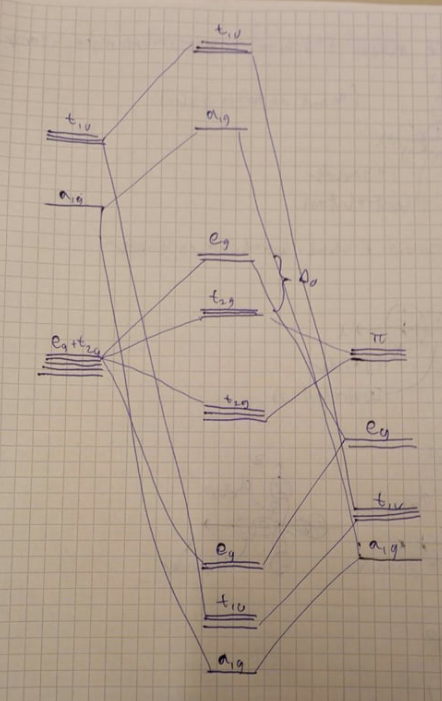 t₁ᵤ
a₁g
t₁ᵤ
a₁g
eg
Δo
t₂g
π
eg+t₂g
t₂g
eg
t₁ᵤ
a₁g
eg
t₁ᵤ
a₁g